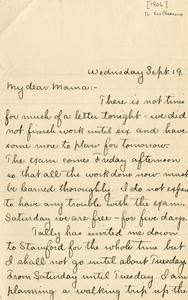 [1906]
to Catharine
Wednesday Sept. 19.
My dear Mama:-
There is not time
for much of a letter tonight - we did
not finish work until six and have
some more to plan for tomorrow.
The exam comes Friday afternoon
so that all the work done now must
be learned thoroughly. I do not expect
to have any trouble with the exam.
Saturday we are free - for five days.
Tally has invited me down
to Stanford for the whole time but
I shall not go until about Tuesday.
From Saturday until Tuesday I am
planning a walking trip up the